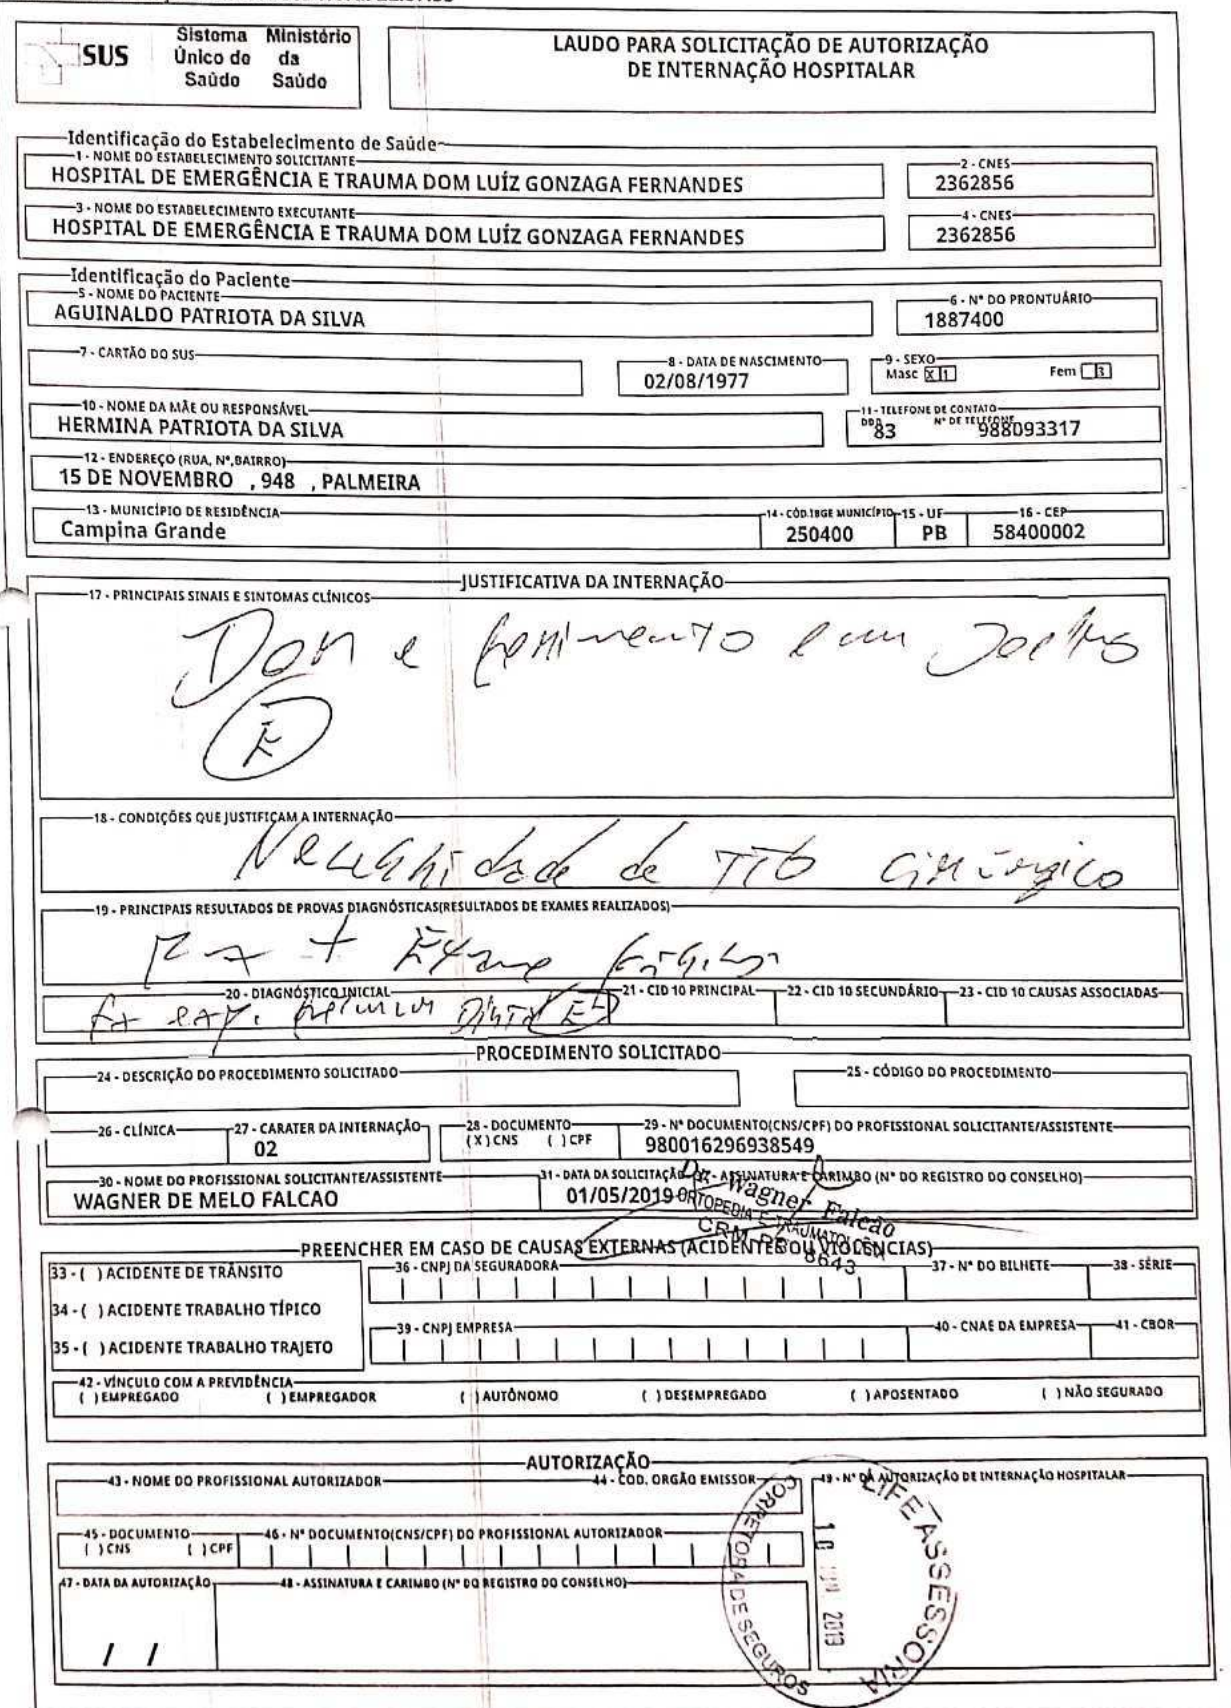 SUS
Sistema Ministério
Único de da
Saúde Saúde
LAUDO PARA SOLICITAÇÃO DE AUTORIZAÇÃO
DE INTERNAÇÃO HOSPITALAR
Identificação do Estabelecimento de Saúde
1 - NOME DO ESTABELECIMENTO SOLICITANTE
2 - CNES
HOSPITAL DE EMERGÊNCIA E TRAUMA DOM LUÍZ GONZAGA FERNANDES
2362856
3 - NOME DO ESTABELECIMENTO EXECUTANTE
4 - CNES
HOSPITAL DE EMERGÊNCIA E TRAUMA DOM LUÍZ GONZAGA FERNANDES
2362856
Identificação do Paciente
5 - NOME DO PACIENTE
6 - N° DO PRONTUÁRIO
AGUINALDO PATRIOTA DA SILVA
1887400
7 - CARTÃO DO SUS
8 - DATA DE NASCIMENTO
9 - SEXO
02/08/1977
Masc X 1 Fem 3
10 - NOME DA MÃE OU RESPONSÁVEL
11 - TELEFONE DE CONTATO
DDD N° DE TELEFONE
HERMINA PATRIOTA DA SILVA
83 988093317
12 - ENDEREÇO (RUA, N°,BAIRRO)
15 DE NOVEMBRO , 948 , PALMEIRA
13 - MUNICÍPIO DE RESIDÊNCIA
14 - CÓD.IBGE MUNICÍPIO
15 - UF
16 - CEP
Campina Grande
250400
PB
58400002
JUSTIFICATIVA DA INTERNAÇÃO
17 - PRINCIPAIS SINAIS E SINTOMAS CLÍNICOS
Dor e ferimento em Joelho
E
18 - CONDIÇÕES QUE JUSTIFICAM A INTERNAÇÃO
Necessidade de TTO cirúrgico
19 - PRINCIPAIS RESULTADOS DE PROVAS DIAGNÓSTICAS(RESULTADOS DE EXAMES REALIZADOS)
RX + Exame
20 - DIAGNÓSTICO INICIAL
21 - CID 10 PRINCIPAL
22 - CID 10 SECUNDÁRIO
23 - CID 10 CAUSAS ASSOCIADAS
Fx exp. Distal E
PROCEDIMENTO SOLICITADO
24 - DESCRIÇÃO DO PROCEDIMENTO SOLICITADO
25 - CÓDIGO DO PROCEDIMENTO
26 - CLÍNICA
27 - CARATER DA INTERNAÇÃO
28 - DOCUMENTO
29 - N° DOCUMENTO(CNS/CPF) DO PROFISSIONAL SOLICITANTE/ASSISTENTE
02
(X) CNS ( ) CPF
980016296938549
30 - NOME DO PROFISSIONAL SOLICITANTE/ASSISTENTE
31 - DATA DA SOLICITAÇÃO
32 - ASSINATURA E CARIMBO (N° DO REGISTRO DO CONSELHO)
WAGNER DE MELO FALCAO
01/05/2019
Dr. Wagner Falcão
ORTOPEDIA E TRAUMATOLOGIA
CRM-PB 8643
PREENCHER EM CASO DE CAUSAS EXTERNAS (ACIDENTES OU VIOLÊNCIAS)
33 - ( ) ACIDENTE DE TRÂNSITO
36 - CNPJ DA SEGURADORA
37 - N° DO BILHETE
38 - SÉRIE
34 - ( ) ACIDENTE TRABALHO TÍPICO
39 - CNPJ EMPRESA
40 - CNAE DA EMPRESA
41 - CBOR
35 - ( ) ACIDENTE TRABALHO TRAJETO
42 - VÍNCULO COM A PREVIDÊNCIA
( ) EMPREGADO ( ) EMPREGADOR ( ) AUTÔNOMO ( ) DESEMPREGADO ( ) APOSENTADO ( ) NÃO SEGURADO
AUTORIZAÇÃO
43 - NOME DO PROFISSIONAL AUTORIZADOR
44 - COD. ORGÃO EMISSOR
49 - N° DA AUTORIZAÇÃO DE INTERNAÇÃO HOSPITALAR
45 - DOCUMENTO
46 - N° DOCUMENTO(CNS/CPF) DO PROFISSIONAL AUTORIZADOR
( ) CNS ( ) CPF
47 - DATA DA AUTORIZAÇÃO
48 - ASSINATURA E CARIMBO (N° DO REGISTRO DO CONSELHO)
/ /
LIFE ASSESSORIA
CORRETORA DE SEGUROS
2019